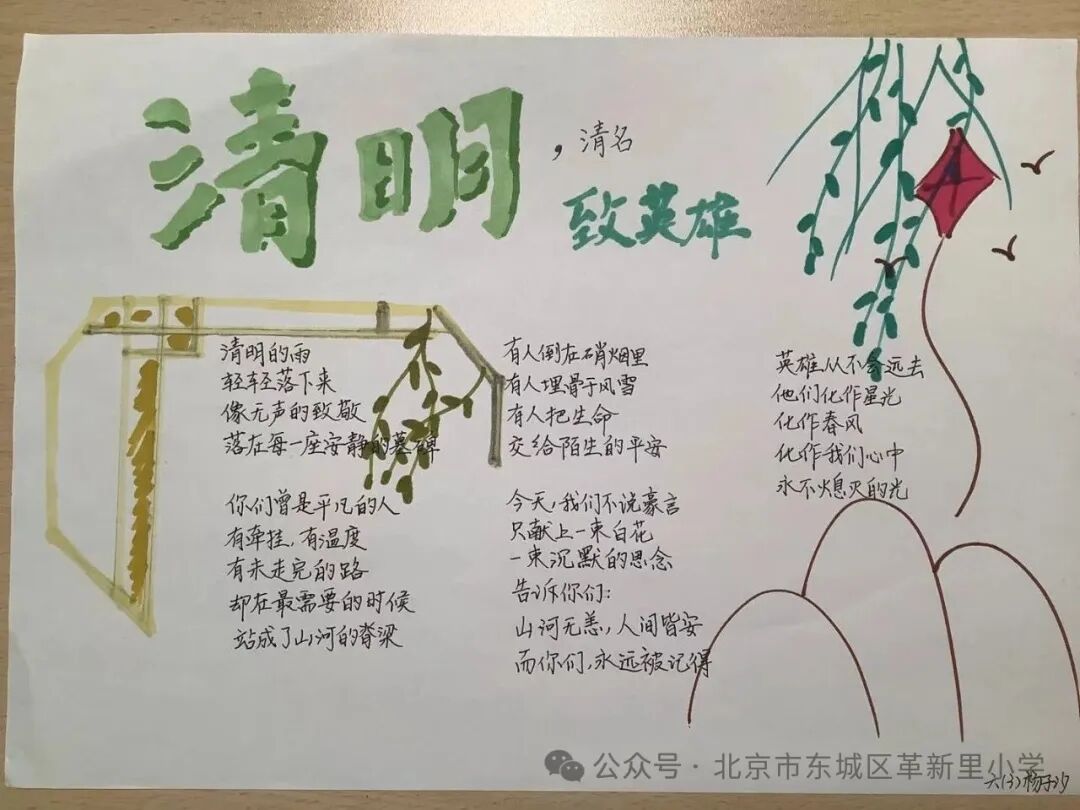 清明
，清名
致英雄
清明的雨
轻轻落下来
像无声的致敬
落在每一座安静的墓碑
你们曾是平凡的人
有牵挂，有温度
有未走完的路
却在最需要的时候
站成了山河的脊梁
有人倒在硝烟里
有人埋骨于风雪
有人把生命
交给陌生的平安
今天，我们不说豪言
只献上一束白花
一束沉默的思念
告诉你们：
山河无恙，人间皆安
而你们，永远被记得
英雄从不会远去
他们化作星光
化作春风
化作我们心中
永不熄灭的光
公众号·北京市东城区革新里小学